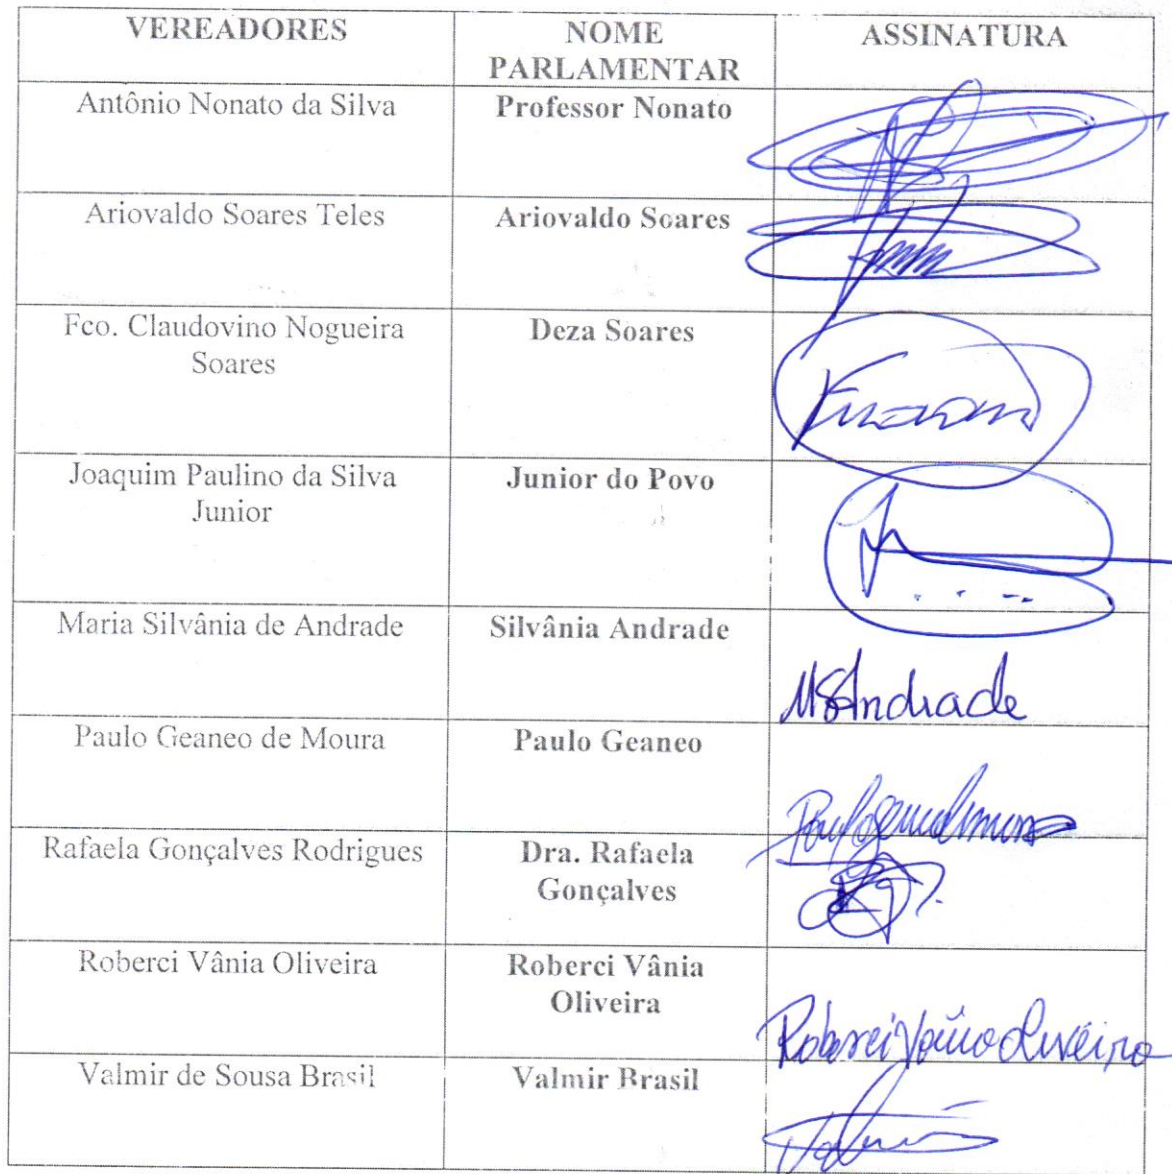 VEREADORES
NOME
PARLAMENTAR
ASSINATURA
Antônio Nonato da Silva
Professor Nonato
Ariovaldo Soares Teles
Ariovaldo Soares
Fco. Claudovino Nogueira
Soares
Deza Soares
Joaquim Paulino da Silva
Junior
Junior do Povo
Maria Silvânia de Andrade
Silvânia Andrade
MSAndrade
Paulo Geaneo de Moura
Paulo Geaneo
Rafaela Gonçalves Rodrigues
Dra. Rafaela
Gonçalves
Roberci Vânia Oliveira
Roberci Vânia
Oliveira
Roberci Vânia Oliveira
Valmir de Sousa Brasil
Valmir Brasil